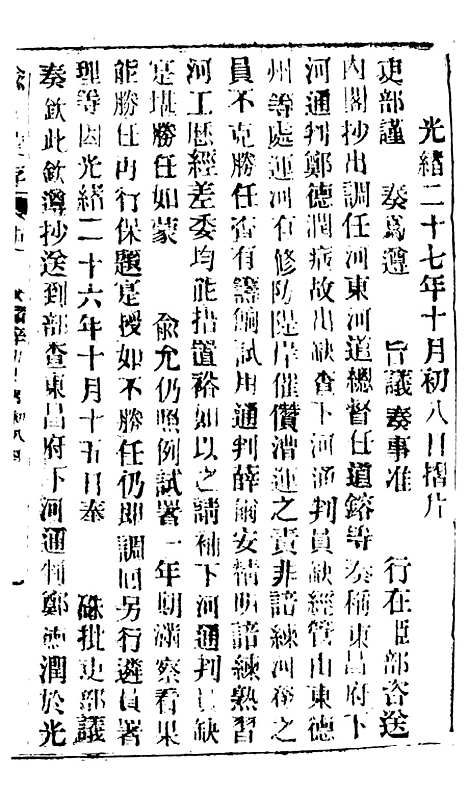 光緒二十七年十月初八日摺片
吏部謹 奏爲遵 旨議奏事准 行在臣部咨送
內閣抄出調任河東河道總督任道鎔等奏稱東昌府下
河通判鄭德潤病故出缺查下河通判員缺經管山東德
州等處運河有修防隄岸催儹漕運之責非諳練河務之
員不克勝任查有籌餉試用通判薛爾安精明諳練熟習
河工歷經差委均能措置裕如以之請補下河通判員缺
寔堪勝任如蒙 俞允仍照例試署一年期滿察看果
能勝任再行保題寔授如不勝任仍即調回另行遴員署
理等因光緒二十六年十月十五日奉 硃批吏部議
奏欽此欽遵抄送到部查東昌府下河通判鄭德潤於光